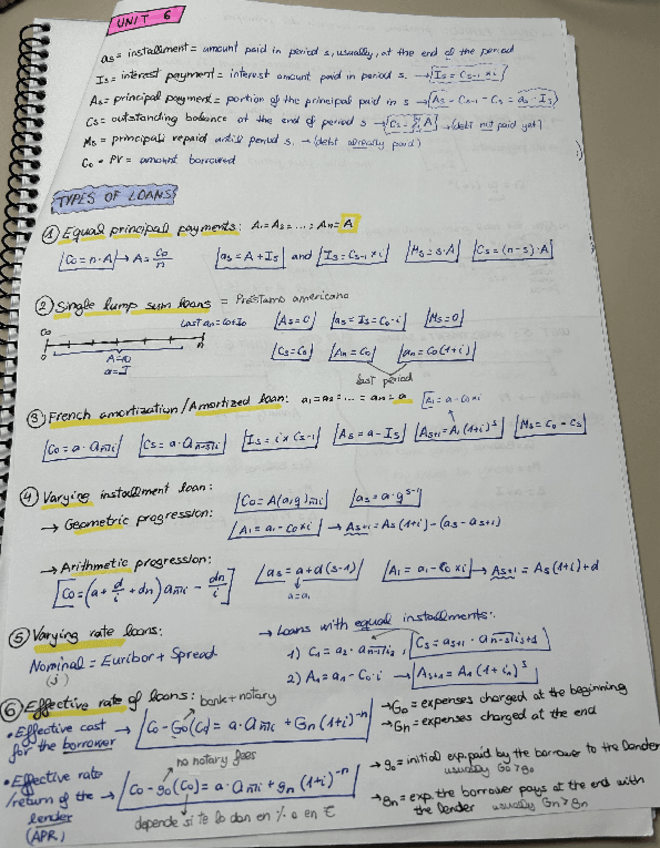 UNIT 6
as = installment = amount paid in period s, usually, at the end of the period
Is = interest payment = interest amount paid in period s. → Is = Cs-1 × i
As = principal payment = portion of the principal paid in s → As = Cs-1 - Cs = as - Is
Cs = outstanding balance at the end of period s → Cs = Σ A → (debt not paid yet)
Ms = principal repaid until period s. → (debt already paid)
Co = PV = amount borrowed
TYPES OF LOANS
① Equal principal payments: A1 = A2 = ... = An = A
Co = n·A → A = Co/n as = A + Is and Is = Cs-1 × i Ms = s·A Cs = (n-s)·A
② Single lump sum loans = Préstamo americano
Co Last an = Co + Io As = 0 as = Is = Co·i Ms = 0
0 n
A = 0 Cs = Co An = Co an = Co(1+i)
a = I last period
③ French amortization / Amortized loan: a1 = a2 = ... = an = a A1 = a - Co×i
Co = a · an¬i Cs = a · an-s¬i Is = i × Cs-1 As = a - Is As+1 = A1 (1+i)^s Ms = Co - Cs
④ Varying installment loan:
→ Geometric progression: Co = A(a,q)n¬i as = a·q^s-1
A1 = a1 - Co×i → As+1 = As (1+i) - (as - as+1)
→ Arithmetic progression:
Co = (a + d/i + dn) an¬i - dn/i as = a + d(s-1) A1 = a1 - Co×i → As+1 = As (1+i) + d
a = a1
⑤ Varying rate loans: → Loans with equal installments:
Nominal = Euribor + Spread 1) C1 = a2 · an-1¬i2, Cs = as+1 · an-s¬is+1
(j) 2) A1 = a1 - Co·i → As+1 = A1 (1+i)^s
⑥ Effective rate of loans: bank + notary
• Effective cost for the borrower → Co - Go(Co) = a · an¬i + Gn (1+i)^-n
→ Go = expenses charged at the beginning
→ Gn = expenses charged at the end
no notary fees
• Effective rate /return of the lender (APR) → Co - go(Co) = a · an¬i + gn (1+i)^-n
depende si te lo dan en % o en €
→ go = initial exp. paid by the borrower to the lender
usually Go > go
→ gn = exp. the borrower pays at the end with
the lender usually Gn > gn